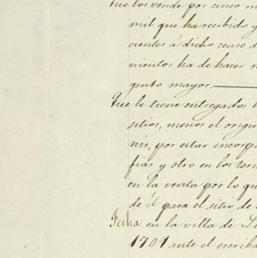 Que los vende por cinco m
mil que ha recibido y
cientos á dicho censo d
mientos ha de hacer r
gusto mayor.
Que le tiene entregados l
sitios, menos el origin
nis, por estar incorpo
fias y otro en los ter
en la venta por lo que
de él para el sitio de
Fecha en la villa de L
1701 ante el escriba